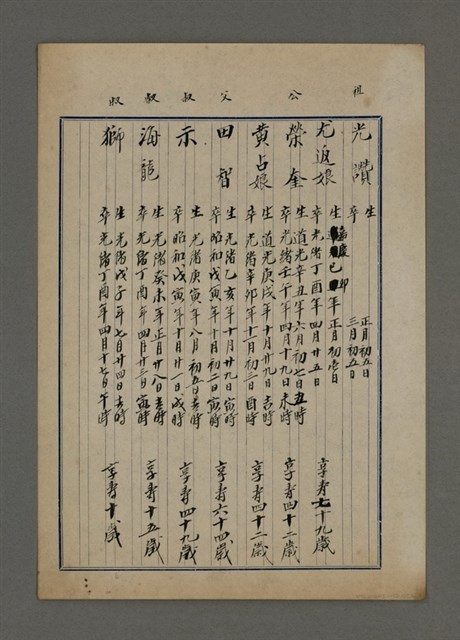 祖 公 父 叔 叔 叔
光讚
生 正月初五日
卒 三月初五日
尤返娘
生 嘉慶己卯年正月初壱日
卒光緒丁酉年四月廿五日
享寿七十九歲
榮奎
生道光辛丑年六月初七日丑時
卒光緒壬午年四月十九日未時
享寿四十二歲
黄占娘
生道光庚戌年十月廿九日吉時
卒光緒辛卯年十一月初三日酉時
享寿四十二歲
田智
生光緒乙亥年十月廿九日寅時
卒昭和戊寅年十月初二日寅時
享寿六十四歲
示
生光緒庚寅年八月初五日吉時
卒昭和戊寅年十月廿一日戌時
享寿四十九歲
海龍
生光緒癸未年正月廿八日吉時
卒光緒丁酉年四月廿三日寅時
享寿十五歲
獅
生光緒戊子年七月廿四日吉時
卒光緒丁酉年四月十七日午時
享寿十歲